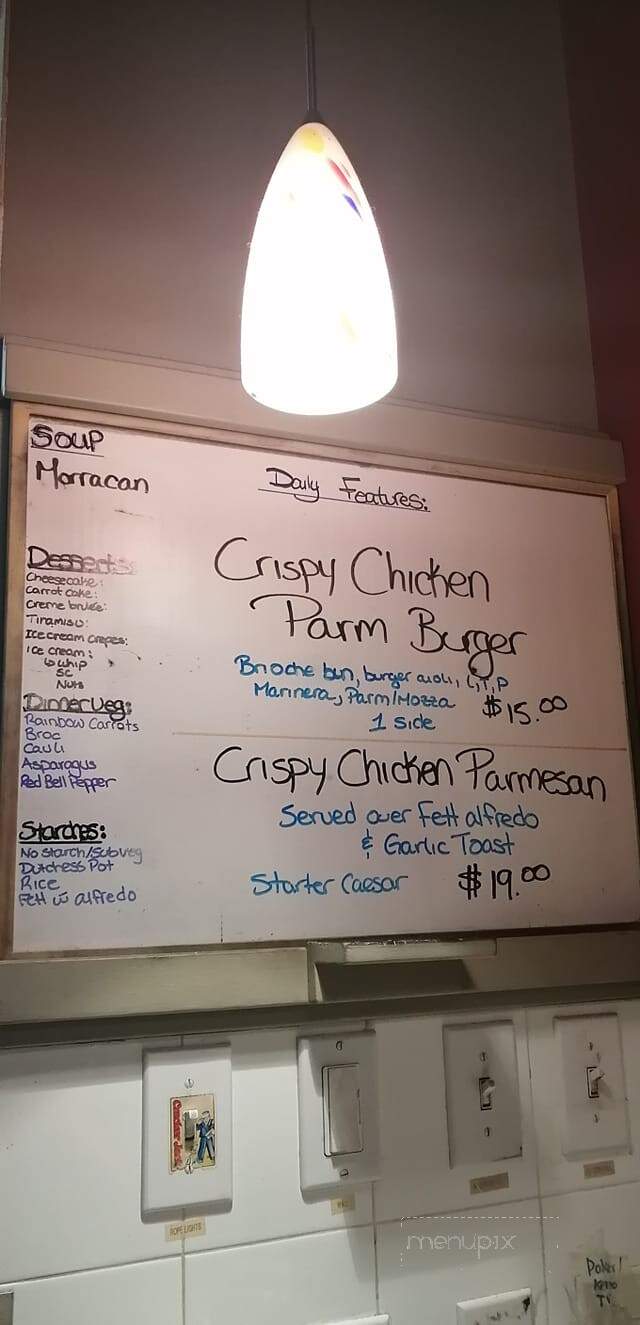 SOUP
Morracan
Daily Features:
Crispy Chicken
Parm Burger
Brioche bun, burger aioli, L, T, P
Marinera, Parm/Mozza
1 side
$15.00
Crispy Chicken Parmesan
Served over Fett alfredo
& Garlic Toast
Starter Caesar
$19.00
Desserts:
Cheesecake:
Carrot Cake:
Creme brulee:
Tiramisu:
Ice cream crepes:
Ice cream:
whip
SC
Nuts
Dinner veg:
Rainbow Carrots
Broc
Cauli
Asparagus
Red Bell Pepper
Starches:
No Starch/Sub veg
Dutchess Pot
Rice
Fett w alfredo
Cracker Jack
ROPE LIGHTS
menupix
Poker/
Keno
TV